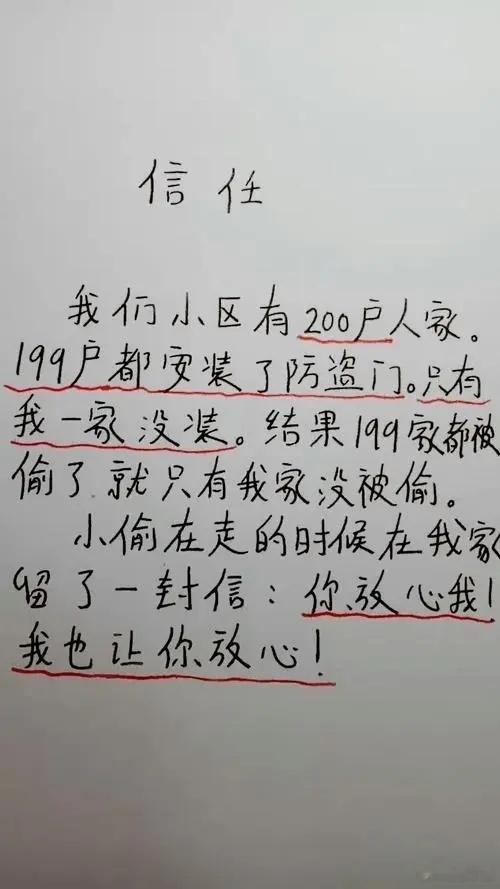 信任
我们小区有200户人家。
199户都安装了防盗门。只有
我一家没装。结果199家都被
偷了就只有我家没被偷。
小偷在走的时候在我家
留了一封信：你放心我！
我也让你放心！